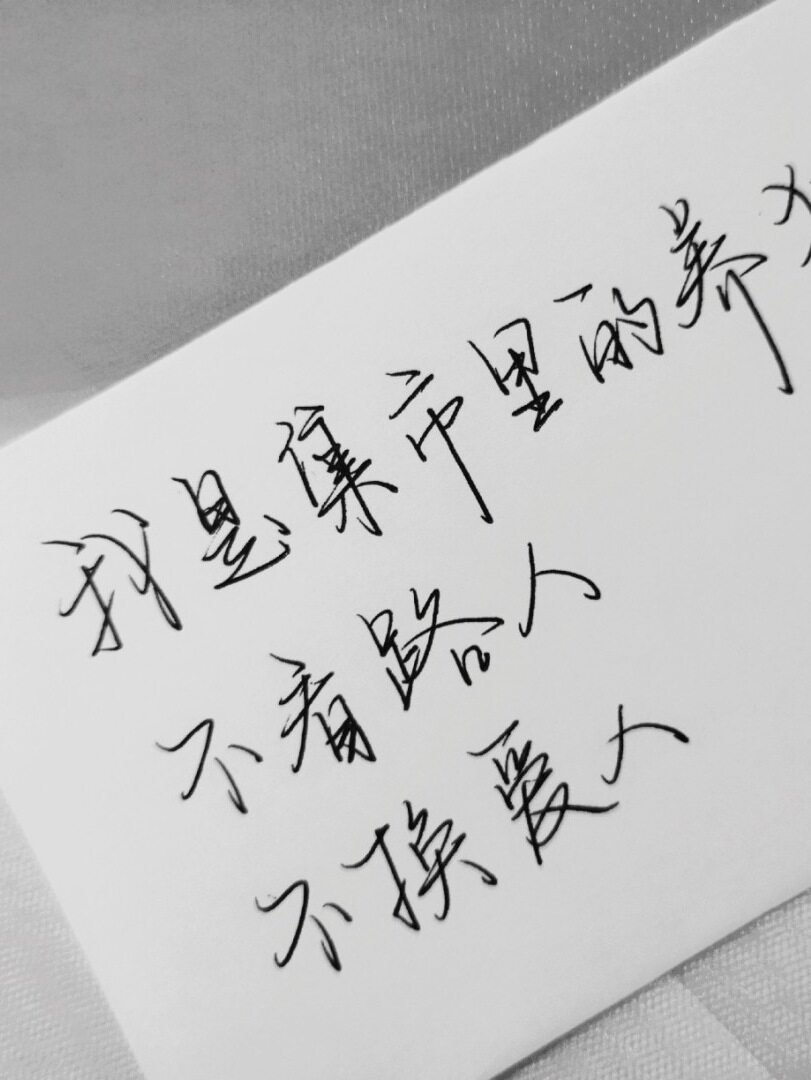 我是集市里的养
不看路人
不换爱人